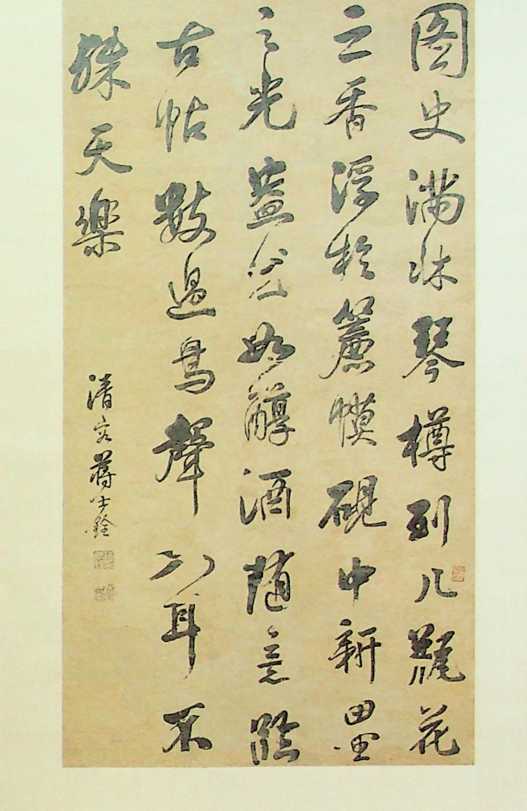 圖史滿牀琴樽列几瓶花
之香浮於簾幙硯中新墨
之光盎如醇酒隨意臨
古帖數過鳥聲入耳不
殊天樂
清容蔣士銓